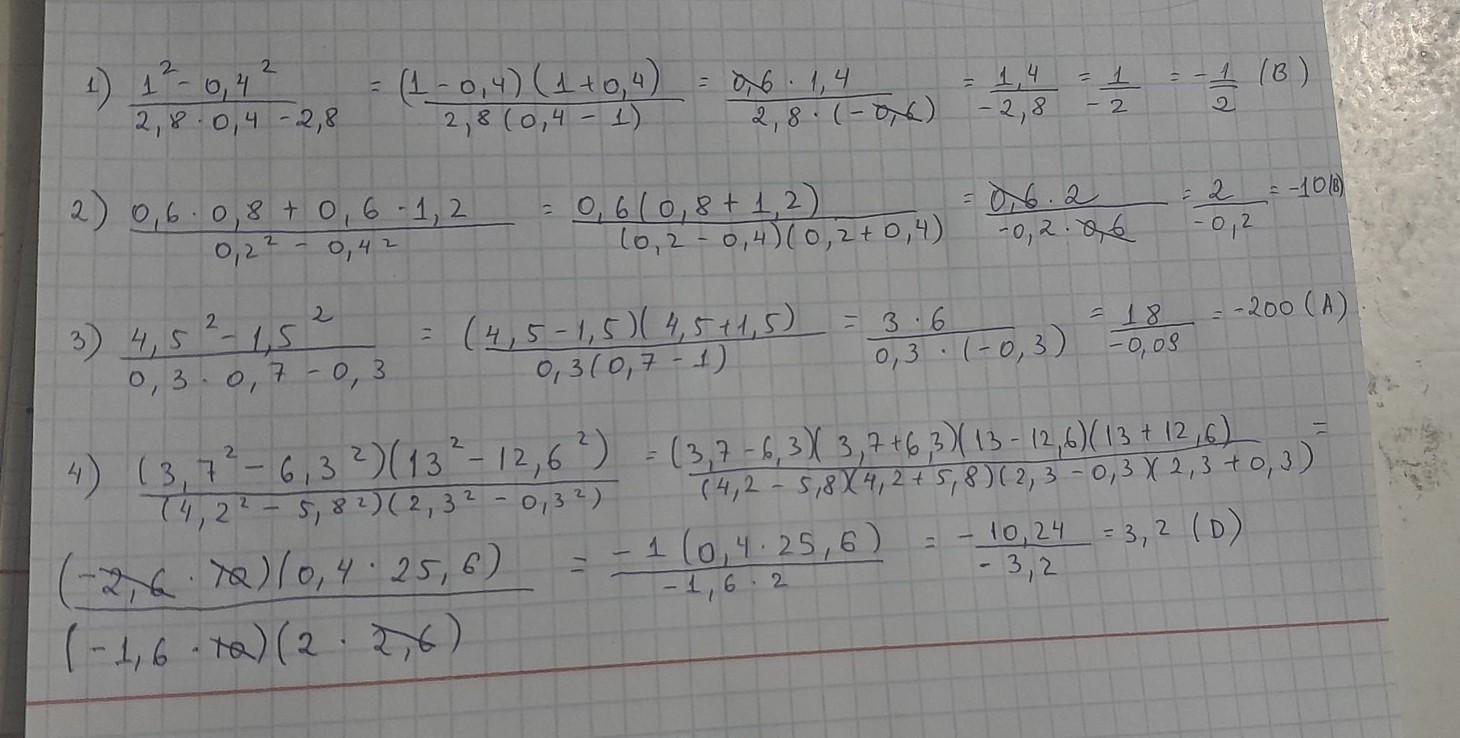 1) (1² - 0,4²)/(2,8 · 0,4 - 2,8) = ((1 - 0,4)(1 + 0,4))/(2,8(0,4 - 1)) = (0,6 · 1,4)/(2,8 · (-0,6)) = 1,4/-2,8 = 1/-2 = -1/2 (B)
2) (0,6 · 0,8 + 0,6 · 1,2)/(0,2² - 0,4²) = (0,6(0,8 + 1,2))/((0,2 - 0,4)(0,2 + 0,4)) = (0,6 · 2)/(-0,2 · 0,6) = 2/-0,2 = -10 (B)
3) (4,5² - 1,5²)/(0,3 · 0,7 - 0,3) = ((4,5 - 1,5)(4,5 + 1,5))/(0,3(0,7 - 1)) = (3 · 6)/(0,3 · (-0,3)) = 18/-0,09 = -200 (A)
4) ((3,7² - 6,3²)(13² - 12,6²))/((4,2² - 5,8²)(2,3² - 0,3²)) = ((3,7 - 6,3)(3,7 + 6,3)(13 - 12,6)(13 + 12,6))/((4,2 - 5,8)(4,2 + 5,8)(2,3 - 0,3)(2,3 + 0,3)) =
((-2,6 · 10)(0,4 · 25,6))/((-1,6 · 10)(2 · 2,6)) = (-1(0,4 · 25,6))/(-1,6 · 2) = -10,24/-3,2 = 3,2 (D)